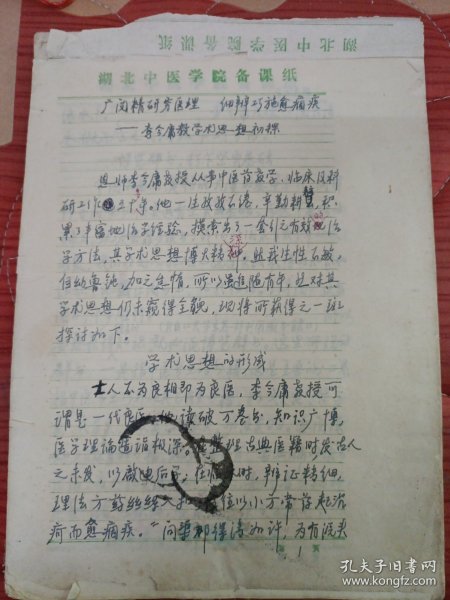 湖北中医学院备课纸
湖北中医学院备课纸
广阅精研穷医理 细辨巧施愈痼疾
——李今庸教学术思想初探
恩师李今庸教授从事中医药教学、临床及科
研工作五十年。他一生孜孜不倦,辛勤耕耘,积
累了丰富的医学经验,摸索出了一套行之有效的治
学方法,其学术思想博大精深。然我生性不敏,
且幼鲁钝,加之怠惰,所以虽追随有年,然对其
学术思想仍未窥得全貌,现将所获得之一斑
探讨如下。
学术思想的形成
士人不为良相即为良医,李今庸教授可
谓是一代良医。他读破万卷书,知识广博,
医学理论造诣极深。在整理古典医籍时发古人
之未发,以启迪后学;在临证时,辨证精细,
理法方药丝丝入扣,往往以小方常药起沉
疴而愈痼疾。“问渠那得清如许,为有源头
第 1 页
孔夫子旧书网
book.kongfz.com